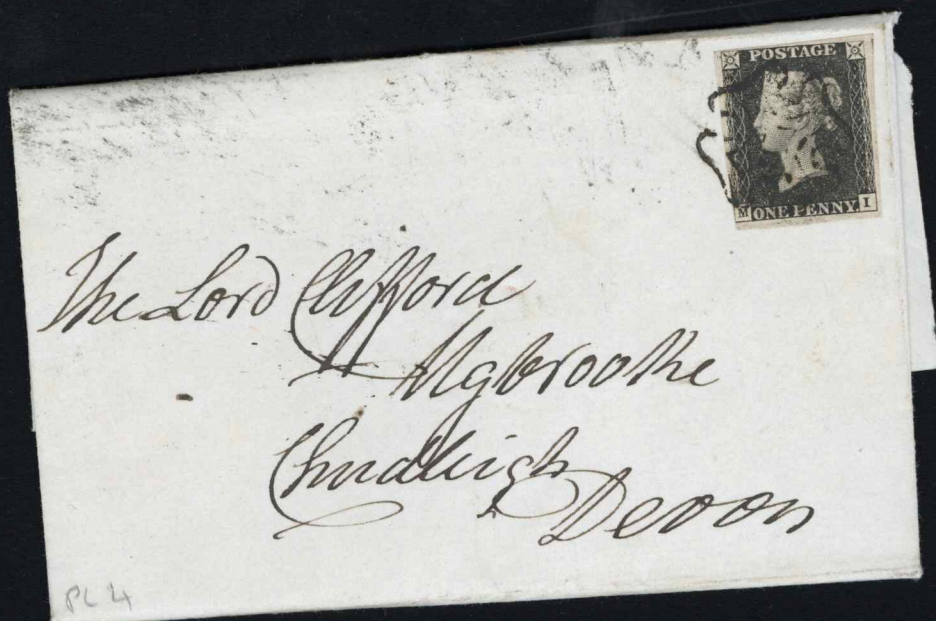 POSTAGE
M ONE PENNY I
The Lord Clifford
Ugbrooke
Chudleigh
Devon
PL 4